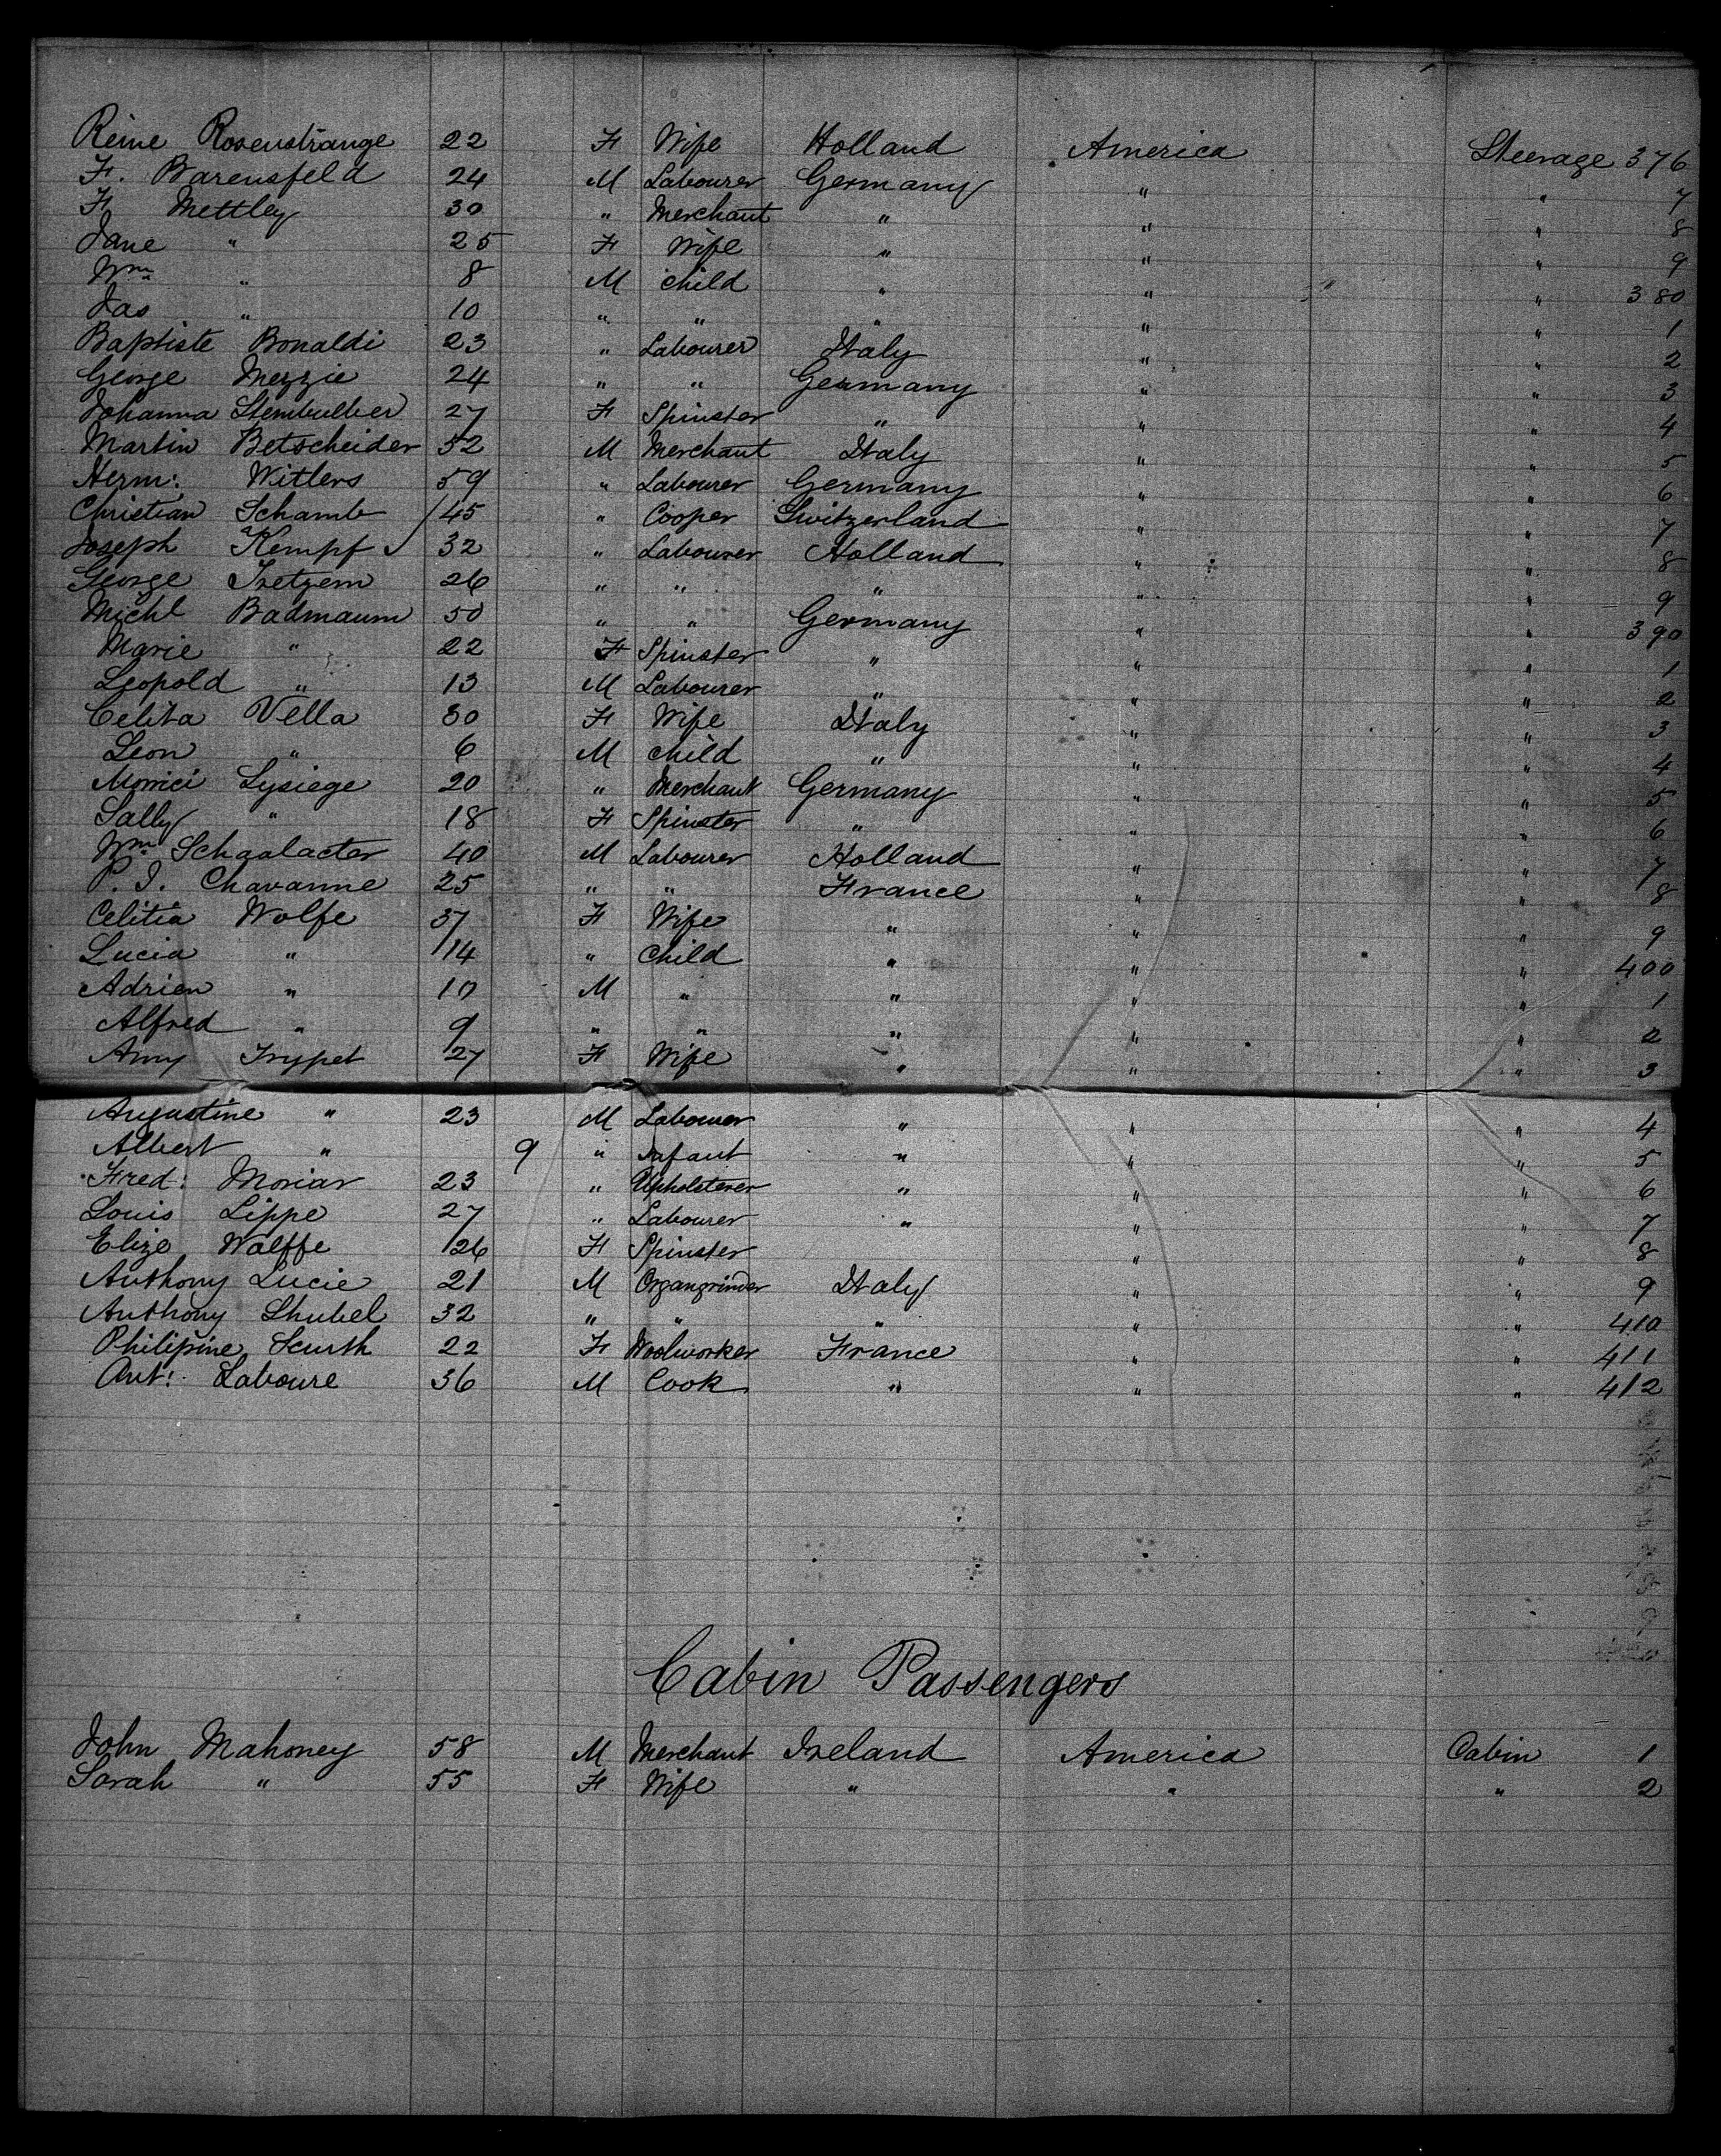 Reine Rosenstrange 22 F Wife Holland America Steerage 376
F. Barensfeld 24 M Labourer Germany " " 7
F Mettley 30 " Merchant " " " 8
Jane " 25 F Wife " " " 9
Wm " 8 M child " " " 380
Jas " 10 " " " " " 1
Baptiste Bonaldi 23 " Labourer Italy " " 2
George Mezzie 24 " " Germany " " 3
Johanna 27 F Spinster " " " 4
Martin Betscheider 52 M Merchant Italy " " 5
Herm: Witlers 59 " Labourer Germany " " 6
Christian Schamb 45 " Cooper Switzerland " " 7
Joseph Kempf 32 " Labourer Holland " " 8
George 26 " " " " " 9
Michl Badmaum 50 " " Germany " " 390
Marie " 22 F Spinster " " " 1
Leopold " 13 M Labourer " " " 2
Celita Vella 30 F Wife Italy " " 3
Leon " 6 M child " " " 4
Lysiege 20 " Merchant Germany " " 5
Sally " 18 F Spinster " " " 6
Wm Schaalacter 40 M Labourer Holland " " 7
P. J. Chavanne 25 " " France " " 8
Celitia Wolfe 37 F Wife " " " 9
Lucia " 14 " Child " " " 400
Adrien " 10 M " " " " 1
Alfred " 9 " " " " " 2
Amy Trypet 27 F Wife " " " 3
Augustine " 23 M Labourer " " " 4
Albert " 9 " infant " " " 5
Fred: Moriar 23 " Upholsterer " " " 6
Louis Lippe 27 " Labourer " " " 7
Elize Walffe 26 F Spinster " " 8
Anthony Lucie 21 M Organgrinder Italy " " 9
Anthony Shubel 32 " " " " " 410
Philipine 22 F Woolworker France " " 411
Ant: Laboure 36 M Cook " " " 412
Cabin Passengers
John Mahoney 58 M Merchant Ireland America Cabin 1
Sarah " 55 F Wife " " " 2